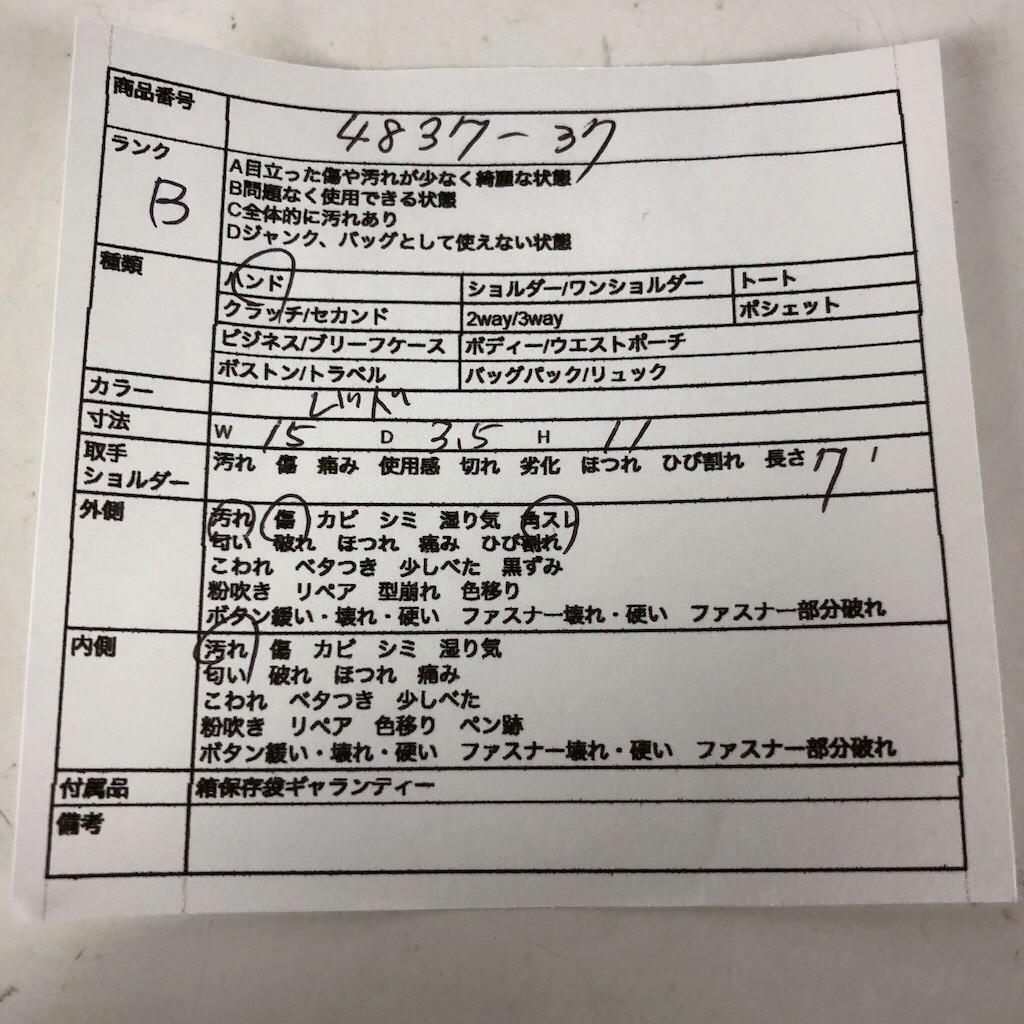 商品番号 4837-37
ランク B
A目立った傷や汚れが少なく綺麗な状態
B問題なく使用できる状態
C全体的に汚れあり
Dジャンク、バッグとして使えない状態
種類 ハンド ショルダー/ワンショルダー トート
クラッチ/セカンド 2way/3way ポシェット
ビジネス/ブリーフケース ボディー/ウエストポーチ
ボストン/トラベル バッグパック/リュック
カラー レッド
寸法 W 15 D 3.5 H 11
取手 汚れ 傷 痛み 使用感 切れ 劣化 ほつれ ひび割れ 長さ 7
ショルダー
外側 汚れ 傷 カビ シミ 湿り気 角スレ
匂い 破れ ほつれ 痛み ひび割れ
こわれ ベタつき 少しべた 黒ずみ
粉吹き リペア 型崩れ 色移り
ボタン緩い・壊れ・硬い ファスナー壊れ・硬い ファスナー部分破れ
内側 汚れ 傷 カビ シミ 湿り気
匂い 破れ ほつれ 痛み
こわれ ベタつき 少しべた
粉吹き リペア 色移り ペン跡
ボタン緩い・壊れ・硬い ファスナー壊れ・硬い ファスナー部分破れ
付属品 箱保存袋ギャランティー
備考